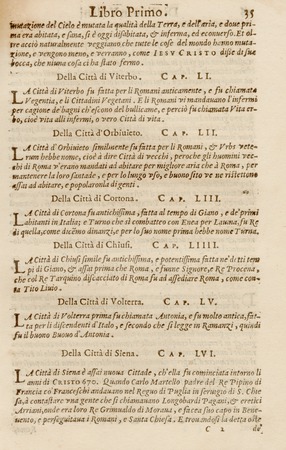 Libro Primo. 35
mutatione del Cielo è mutata la qualità della Terra, e dell'aria, e doue pri-
ma era abitata, e sana, si è oggi disabitata, & inferma, ed econuerso. Et ol-
tre acciò naturalmente veggiamo, che tutte le cose del mondo hanno muta-
zione, e vengono meno, e verranno, come IESV CRISTO disse di sua
bocca, che niuna cosa ci ha stato fermo.
Della Città di Viterbo. CAP. LI.
LA Città di Viterbo fu fatta per li Romani anticamente, e fu chiamata
Vegentia, e li Cittadini Vegetani. E li Romani vi mandauano l'infermi
per cagione de bagni ch'escono del bullicame, e perciò fu chiamata Vita er-
bo, cioè vita alli infermi, o vero Città di vita.
Della Città d'Orbiueto. CAP. LII.
LA Città d'Orbiueto similmente fu fatta per li Romani, & Vrbs vete-
rum hebbe nome, cioè à dire Città de vecchi, peroche gli huomini vec-
chi di Roma v'erano mandati ad abitare per migliore aria che à Roma, per
mantenere la loro santade, e per lo lungo vso, e buono sito ve ne ristettono
assai ad abitare, e popolaronla di genti.
Della Città di Cortona. CAP. LIII.
LA Città di Cortona fu antichissima, fatta al tempo di Giano, e de' primi
abitanti in Italia; e Turno che si combatteo con Enea per Lauina, fu Re
di quella, come dicemo dinanzi, e per lo suo nome prima hebbe nome Turna.
Della Città di Chiusi. CAP. LIIII.
LA Città di Chiusi simile fu antichissima, e potentissima fatta ne' detti tem
pi di Giano, & assai prima che Roma, e funne Signore, e Re Procena,
che col Re Tarquino discacciato di Roma fu ad assediare Roma, come con-
ta Tito Liuio.
Della Città di Volterra. CAP. LV.
LA Città di Volterra prima fu chiamata Antonia, e fu molto antica, fat-
ta per li discendenti d'Italo, e secondo che si legge in Ramanzi, quindi
fu il buono Buouo d'Antonia.
Della Città di Siena. CAP. LVI.
LA Città di Siena è assai nuoua Cittade, ch'ella fu cominciata intorno li
anni di CRISTO 670. Quando Carlo Martello padre del Re Pipino di
Francia co' Franceschi andauano nel Regno di Puglia in seruigio di S. Chie
sa, à contastare vna gente che si chiamauano i Longobardi Pagani, & eretici
Arriani, onde era loro Re Grimualdo di Morana, e facea suo capo in Bene-
uento, e perseguitaua i Romani, e Santa Chiesa. E trouandosi la detta oste
C 2 de'